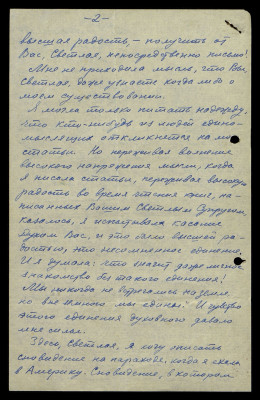 -2-
высшая радость — получить от
Вас, Светлая, непосредственно письмо!
Мне не приходила мысль, что Вы,
Светлая, даже узнаете когда либо о
моем существовании.
Я могла только питать надежду,
что кто-нибудь из людей едино-
мыслящих откликнется на мои
статьи. Но переживая волнение
высокого напряжения мысли, когда
я писала статьи, переживая высокую
радость во время чтения книг, на-
писанных Вашим Светлым Супругом,
казалось, я испытывала касание
Духом Вас, и это было высшей ра-
достью, это несомненное единение.
И я думала: что значит даже личное
знакомство без такого единения!
Мы никогда не встречались на земле,
но вне земного мы едины! И чувство
этого единения духовного давало
мне силы.
Здесь, Светлая, я хочу описать
сновидение на пароходе, когда я ехала
в Америку. Сновидение, в котором